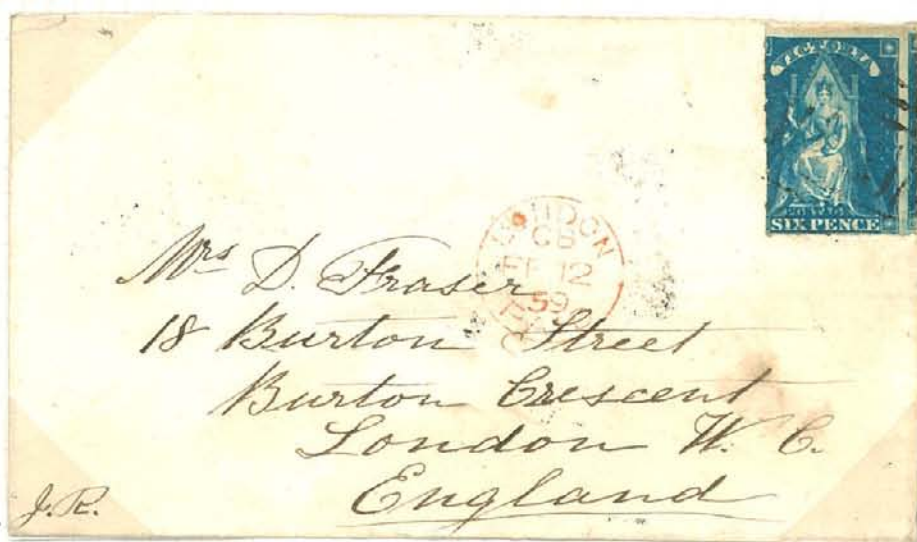 VICTORIA
POSTAGE
SIX PENCE
LONDON
CB
FE 12
59
PAID
Mrs D. Fraser
18 Burton Street
Burton Crescent
London W. C.
England
J.R.